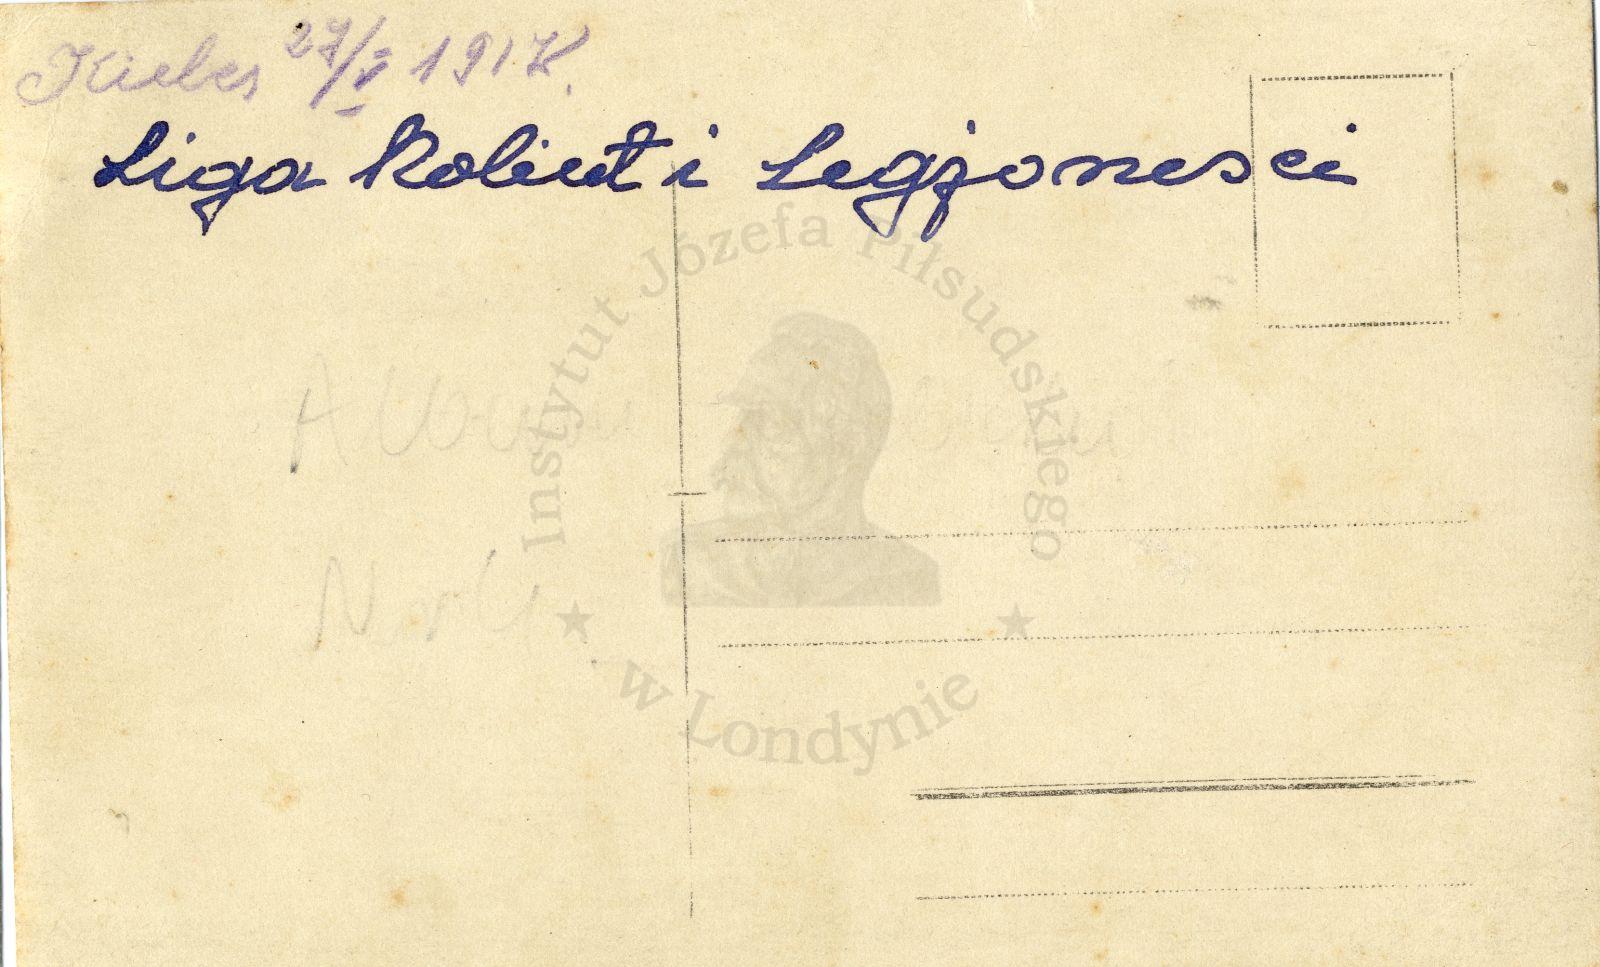 Kielce 27/V 1917 r.
Liga Kobiet i Legjoneści
Instytut Józefa Piłsudskiego
w Londynie